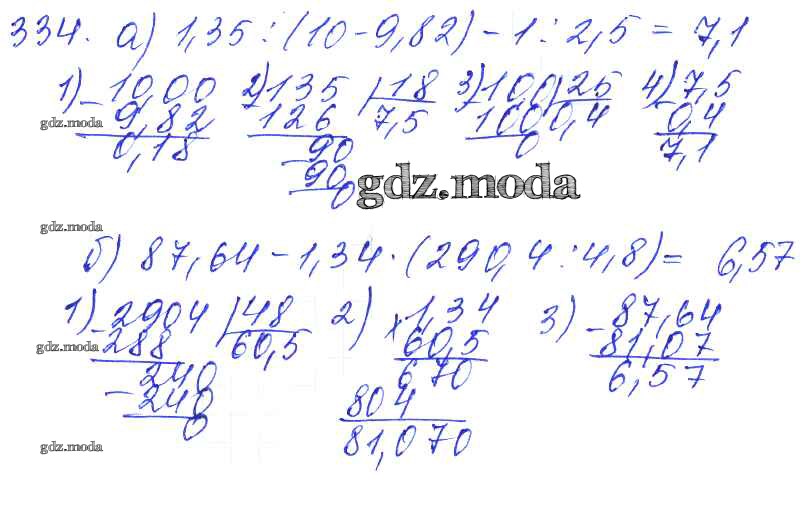 334. а) 1,35 : (10 - 9,82) - 1 : 2,5 = 7,1
1) - 10,00 2) - 135 | 18 3) - 100 | 25 4) - 7,5
gdz.moda 9,82 126 7,5 100 0,4 0,4
0,18 - 90 0 7,1
90
0
gdz.moda
gdz.moda
б) 87,64 - 1,34 · (290,4 : 4,8) = 6,57
1) - 2904 | 48 2) × 1,34 3) - 87,64
gdz.moda 288 60,5 60,5 81,07
240 670 6,57
- 240 804
0 81,070
gdz.moda